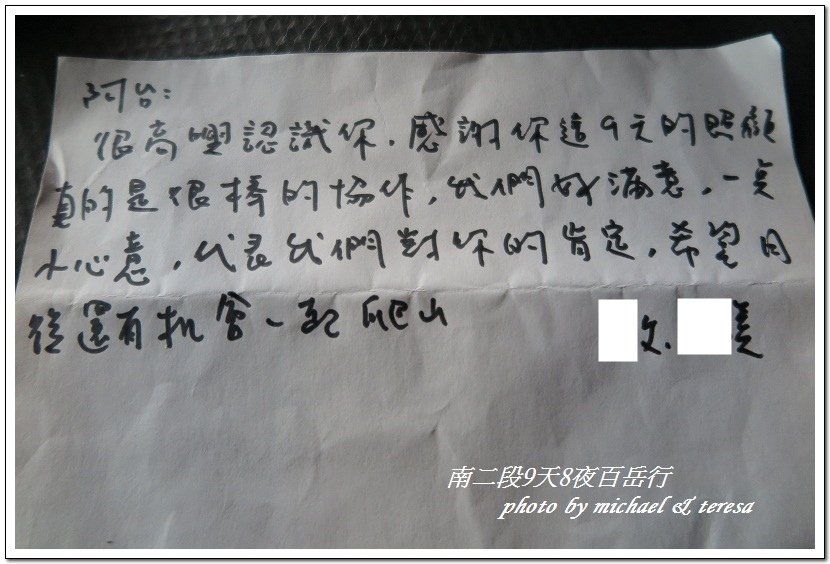 阿台:
很高興認識你.感謝你這9天的照顧
真的是很棒的協作,我們好滿意,一点
小心意,代表我們對你的肯定,希望日
後還有机會一起爬山
文. 美
南二段9天8夜百岳行
photo by michael & teresa